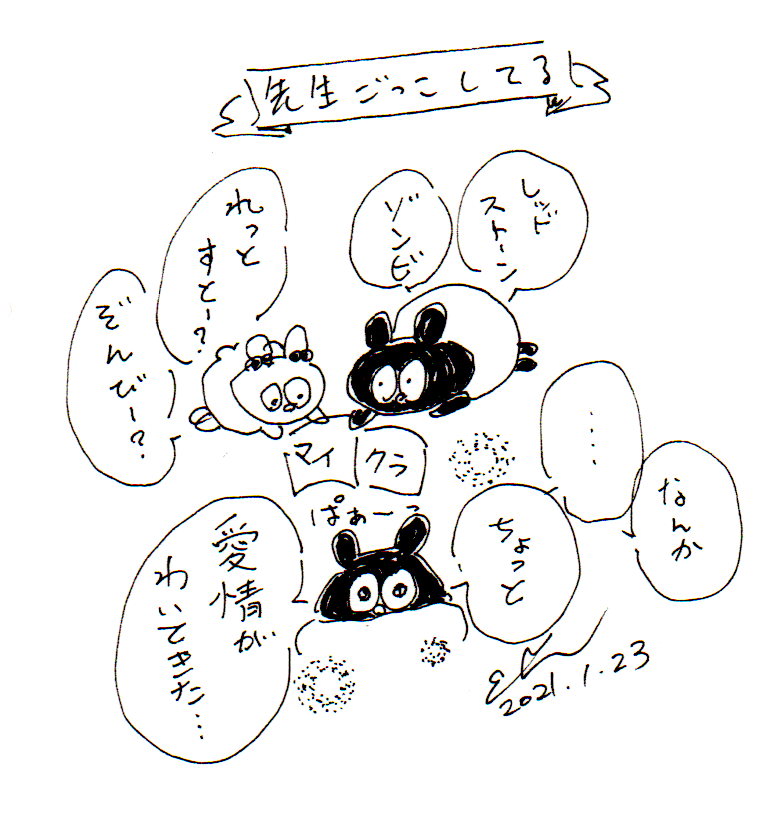 先生ごっこしてる
レッド
ストーン
ゾンビ
れっと
すとー?
ぞんびー?
マイクラ
ぱぁーっ
‥‥
なんか
ちょっと
愛情が
わいてきた…
2021.1.23